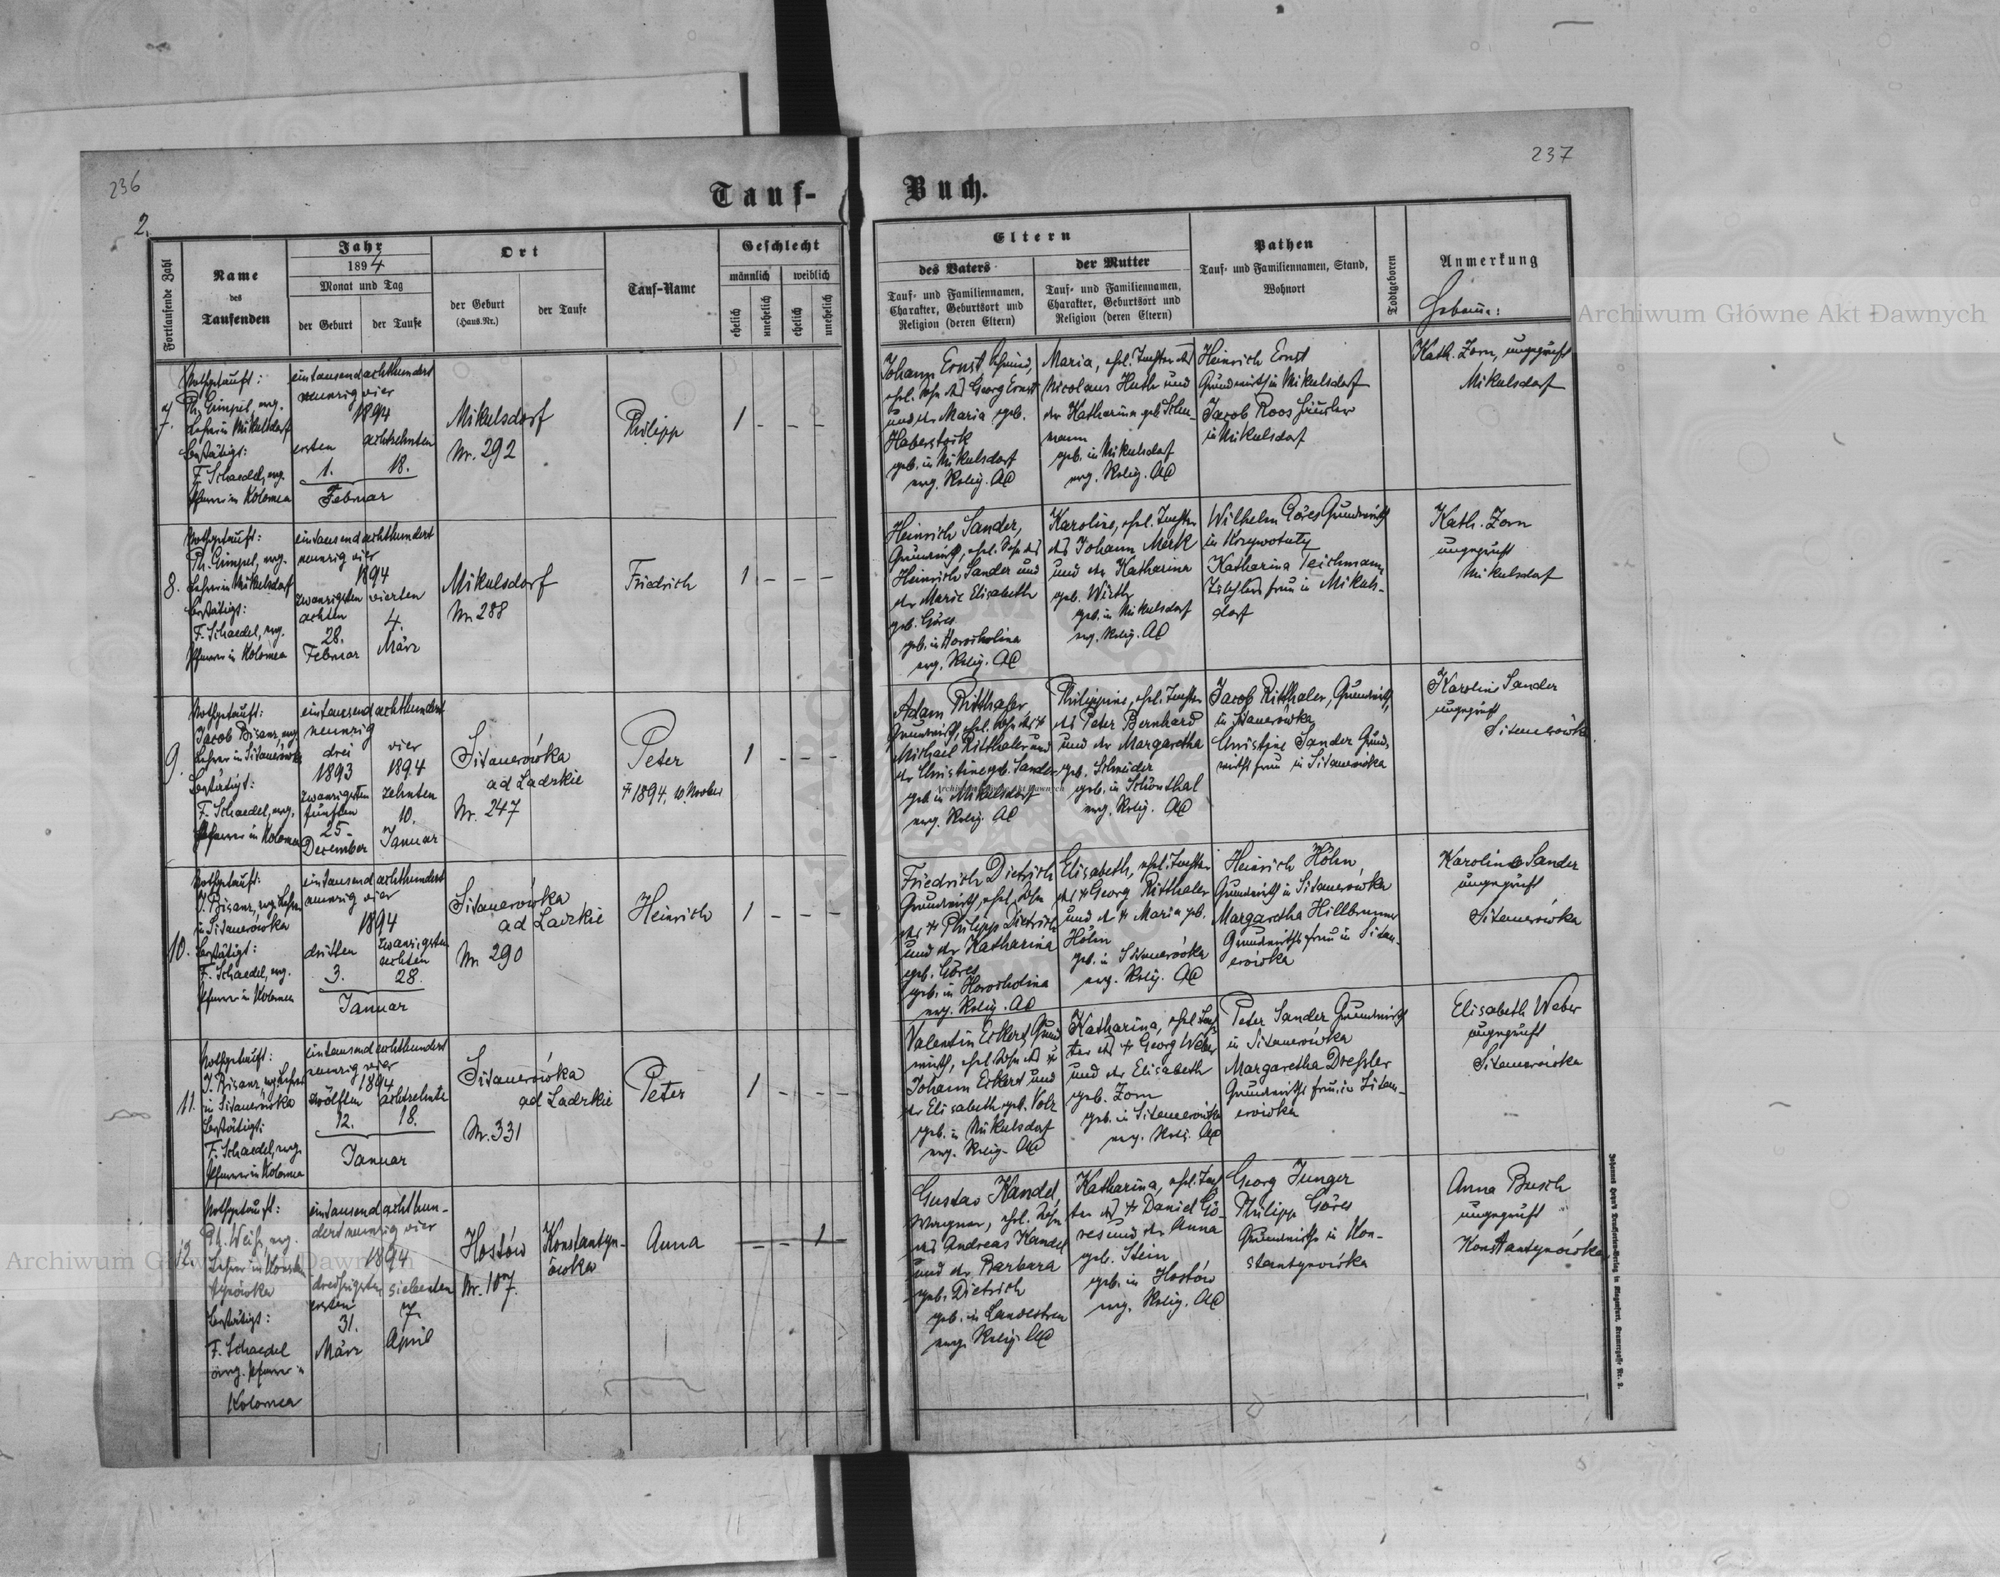 236
237
Tauf-
Buch.
2.
Fortlaufende Zahl
Name
des
Taufenden
Jahr
1894
Monat und Tag
der Geburt
der Taufe
Ort
der Geburt
(Haus-Nr.)
der Taufe
Tauf-Name
Geschlecht
männlich
weiblich
ehelich
unehelich
ehelich
unehelich
Eltern
des Vaters
Tauf- und Familiennamen,
Charakter, Geburtsort und
Religion (deren Eltern)
der Mutter
Tauf- und Familiennamen,
Charakter, Geburtsort und
Religion (deren Eltern)
Pathen
Tauf- und Familiennamen, Stand,
Wohnort
Todtgeboren
Anmerkung
Hebam.:
7.
Nothgetauft:
Ph. Gimpel, evg.
Lehrer in Mikulsdorf
bestätigt:
F. Schaedel, evg.
Pfarrer in Kolomea
eintausendachthundert
neunzig vier
1894
ersten
achtzehnten
1.
18.
Februar
Mikulsdorf
Nr. 292
Philipp
1 - - -
Johann Ernst
ehel. Sohn des Georg Ernst
und der Maria geb.
Haberstock
geb. in Mikulsdorf
evg. Relig. AC
Maria, ehel. Tochter des
Nicolaus Huth und
der Katharina geb. Scheu-
mann
geb. in Mikulsdorf
evg. Relig. AC
Heinrich Ernst
Grundwirth in Mikulsdorf
Jacob Roos Häusler
in Mikulsdorf
Kath. Zorn, ungeprüft
Mikulsdorf
8.
Nothgetauft:
Ph. Gimpel, evg.
Lehrer in Mikulsdorf
bestätigt:
F. Schaedel, evg.
Pfarrer in Kolomea
eintausendachthundert
neunzig vier
1894
zwanzigsten
achten
28.
Februar
vierten
4.
März
Mikulsdorf
Nr. 288
Friedrich
1 - - -
Heinrich Sander,
Grundwirth, ehel. Sohn des
Heinrich Sander und
der Marie Elisabeth
geb. Göres
geb. in Horocholina
evg. Relig. AC
Karoline, ehel. Tochter
des Johann Merk
und der Katharina
geb. Wirth
geb. in Mikulsdorf
evg. Relig. AC
Wilhelm Göres Grundwirth
in Krzywotuly
Katharina Teichmann
Tischlers frau in Mikuls-
dorf
Kath. Zorn
ungeprüft
Mikulsdorf
9.
Nothgetauft:
Jacob Bisanz, evg.
Lehrer in Sitauerówka
bestätigt:
F. Schaedel, evg.
Pfarrer in Kolomea
eintausendachthundert
neunzig
drei
vier
1893
1894
zwanzigsten
fünften
25.
December
zehnten
10.
Januar
Sitauerówka
ad Ladzkie
Nr. 247
Peter
1 - - -
Adam Ritthaler
Grundwirth, ehel. Sohn des †
Michael Ritthaler und
der Christine geb. Sander
geb. in Mikulsdorf
evg. Relig. AC
Philippine, ehel. Tochter
des Peter Bernhard
und der Margaretha
geb. Schneider
geb. in Schönthal
evg. Relig. AC
Jacob Ritthaler, Grundwirth,
in Sitauerówka
Christine Sander Grund-
wirths frau in Sitauerówka
Karoline Sander
ungeprüft
Sitauerówka
10.
Nothgetauft:
J. Bisanz, evg. Lehrer
in Sitauerówka
bestätigt:
F. Schaedel, evg.
Pfarrer in Kolomea
eintausendachthundert
neunzig vier
1894
dritten
zwanzigsten
achten
3.
28.
Januar
Sitauerówka
ad Ladzkie
Nr. 290
Heinrich
1 - - -
Friedrich Dietrich
Grundwirth, ehel. Sohn
des † Philipp Dietrich
und der Katharina
geb. Göres
geb. in Horocholina
evg. Relig. AC
Elisabeth, ehel. Tochter
des † Georg Ritthaler
und der † Maria geb.
Höhn
geb. in Sitauerówka
evg. Relig. AC
Heinrich Höhn,
Grundwirth in Sitauerówka
Margaretha Hillbrunner
Grundwirths frau in Sitau-
erówka
Karoline Sander
ungeprüft
Sitauerówka
11.
Nothgetauft:
J. Bisanz, evg. Lehrer
in Sitauerówka
bestätigt:
F. Schaedel, evg.
Pfarrer in Kolomea
eintausendachthundert
neunzig vier
1894
zwölften
achtzehnten
12.
18.
Januar
Sitauerówka
ad Ladzkie
Nr. 331
Peter
1 - - -
Valentin Eckert Grund-
wirth, ehel. Sohn des †
Johann Eckert und
der Elisabeth geb. Volz
geb. in Mikulsdorf
evg. Relig. AC
Katharina, ehel. Toch-
ter des † Georg Weber
und der Elisabeth
geb. Zorn
geb. in Sitauerówka
evg. Relig. AC
Peter Sander Grundwirth
in Sitauerówka
Margaretha Dreßler
Grundwirths frau in Sitau-
erówka
Elisabeth Weber
ungeprüft
Sitauerówka
12.
Nothgetauft:
Ph. Weiß, evg.
Lehrer in Konstan-
tynówka
bestätigt:
F. Schaedel
evg. Pfarrer in
Kolomea
eintausendachthun-
dertneunzig vier
1894
dreißigsten
ersten
31.
März
siebenten
7.
April
Hostów
Nr. 107.
Konstantyn-
ówka
Anna
- - 1 -
Gustav Kandel,
Wagner, ehel. Sohn
des Andreas Kandel
und der Barbara
geb. Dietrich
geb. in Landestreu
evg. Relig. AC
Katharina, ehel. Toch-
ter des † Daniel Gö-
res und der Anna
geb. Stein
geb. in Hostów
evg. Relig. AC
Georg Junger
Philipp Göres
Grundwirthe in Kon-
stantynówka
Anna Busch
ungeprüft
Konstantynówka
Archiwum Główne Akt Dawnych
Archiwum Główne Akt Dawnych
Archiwum Główne Akt Dawnych